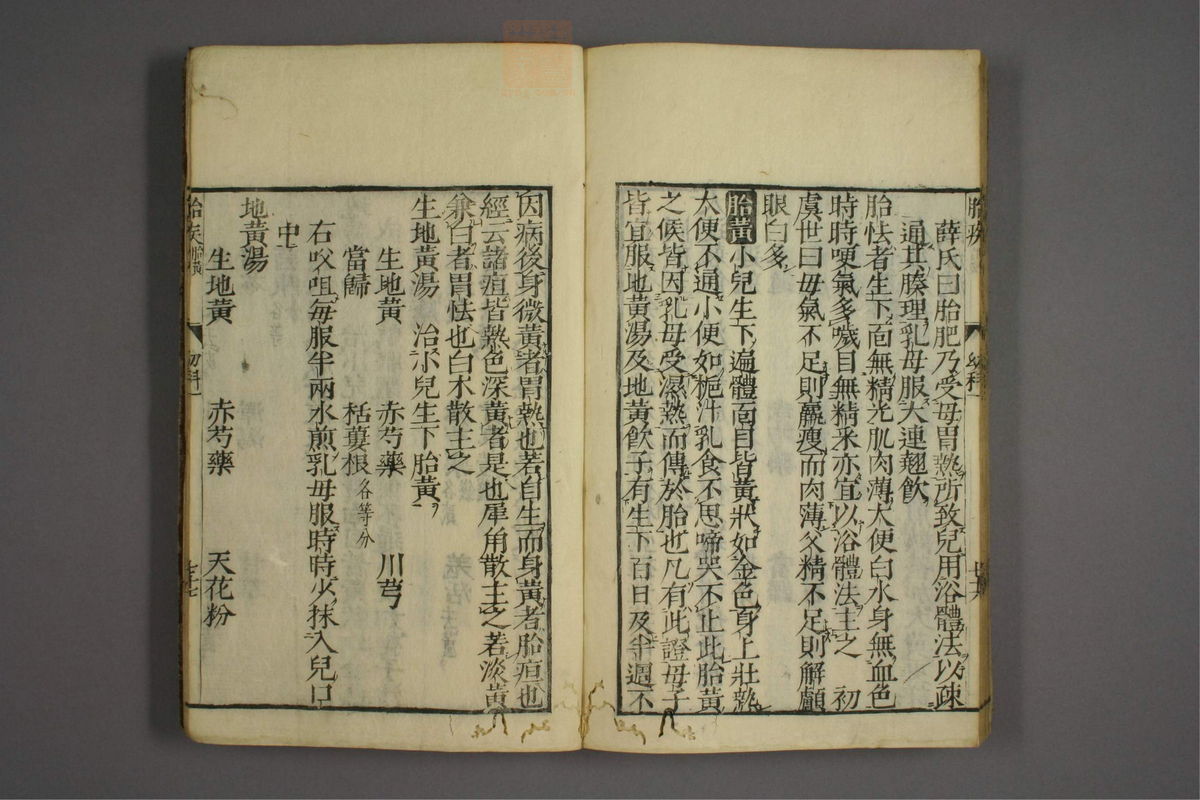 薛氏曰胎肥乃受母胃熱所致兒用浴體法以疎
通其腠理乳母服大連翹飲
胎怯者生下面無精光肌肉薄大便白水身無血色
時時哽氣多噦目無精釆亦宜以浴體法主之　初
虞世曰母氣不足則羸瘦而肉薄父精不足則解顱
眼白多
胎黃小兒生下遍體面目皆黃狀如金色身上壯熱
大便不通小便如梔汁乳食不思啼哭不止此胎黃
之候皆因乳母受濕熱而傳於胎也凡有此證母子
皆宜服地黃湯及地黃飲子有生下百日及半週不
胎疾
幼科一
七十六
因病後身微黃者胃熱也若自生而身黃者胎疸也
經云諸疸皆熱色深黃者是也犀角散主之若淡黃
兼白者胃怯也白朮散主之
生地黃湯　治小兒生下胎黃
生地黃　赤芍藥　川芎
當歸　栝蔞根各等分
右㕮咀每服半兩水煎乳母服時時少抹入兒口
中
地黃湯
生地黃　赤芍藥　天花粉
胎疾
幼科一
七十七